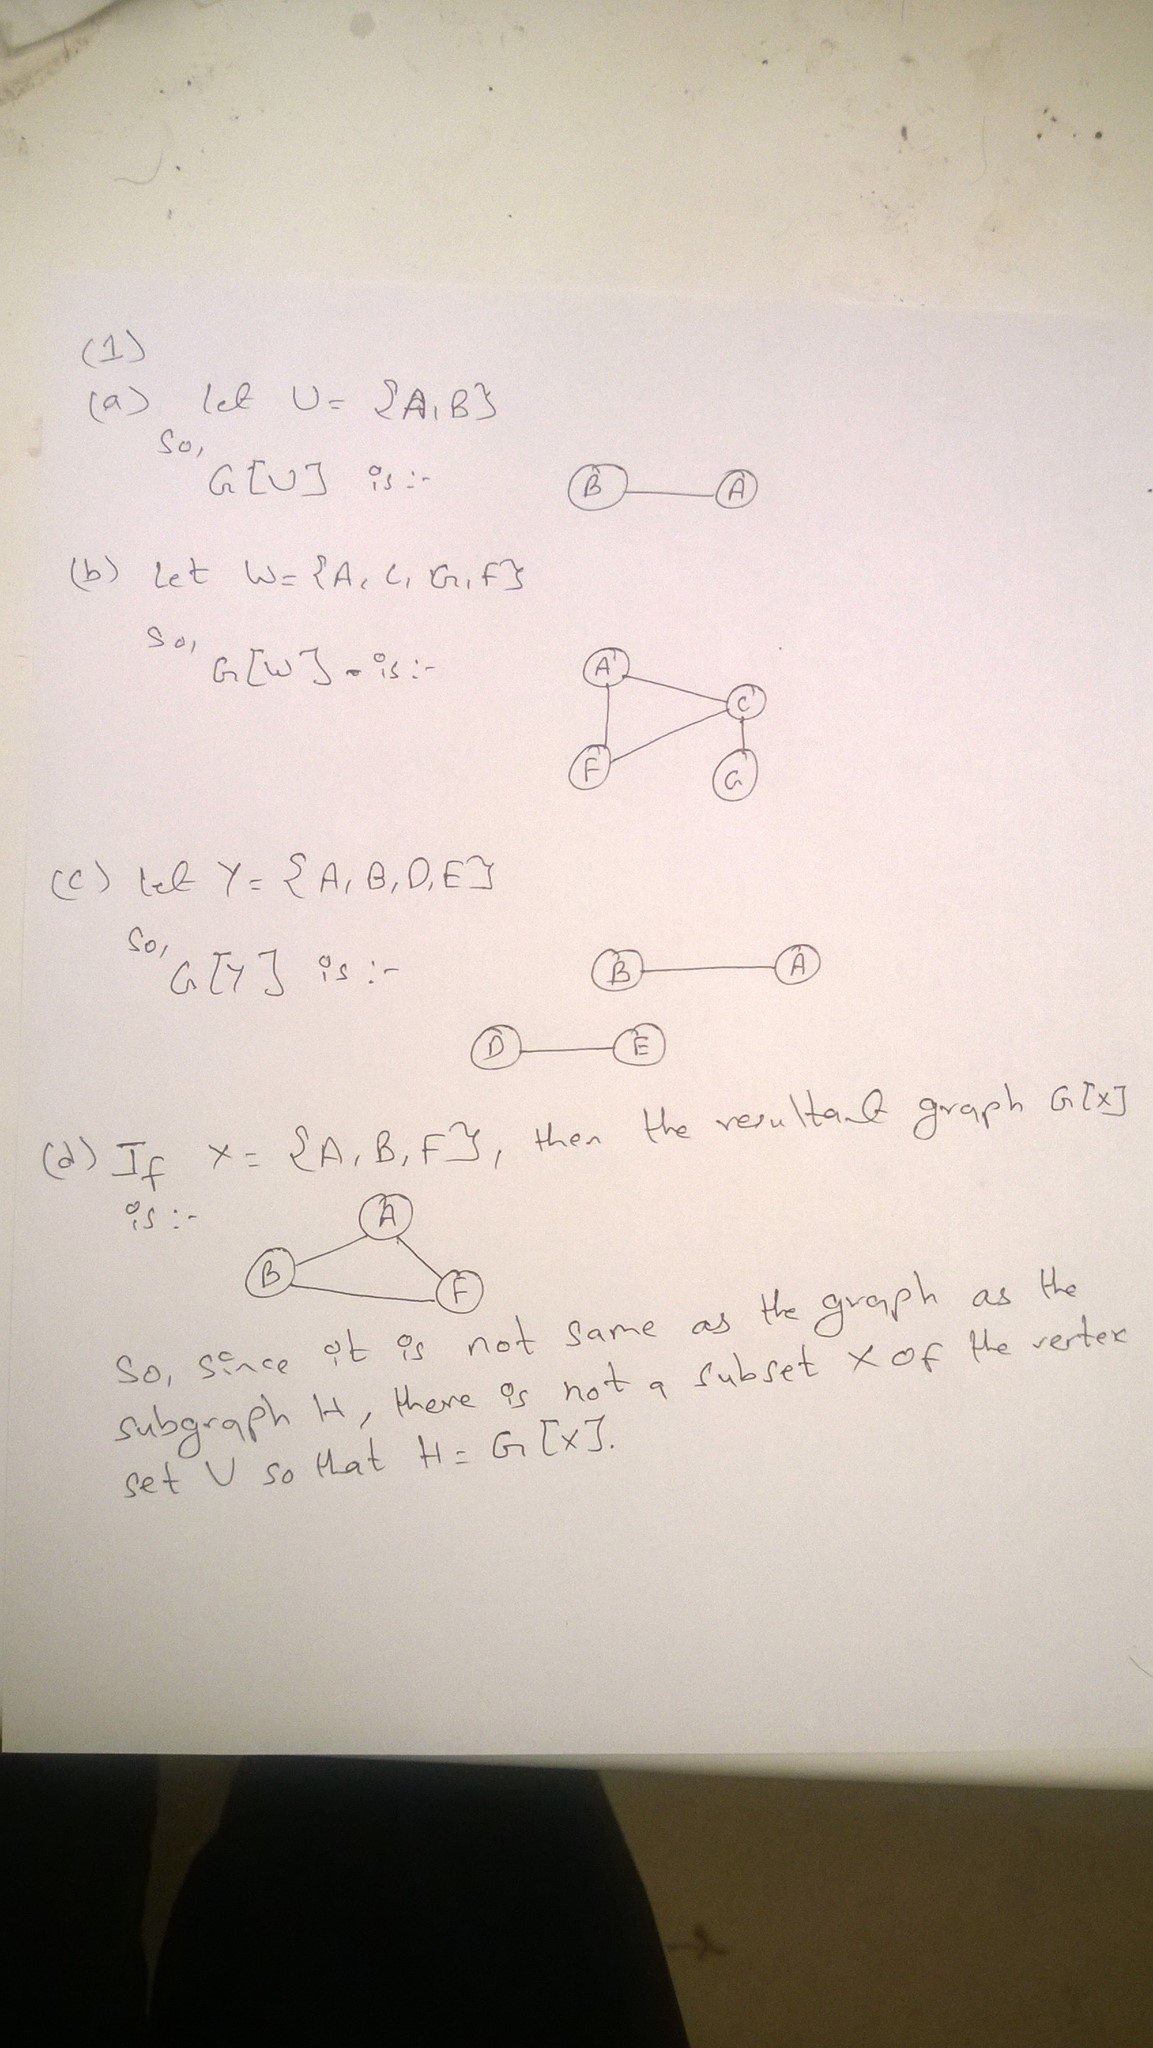 (1)
(a) let U = {A, B}
So,
G[U] is :-
B A
(b) Let W = {A, C, G, F}
So,
G[W] - is :-
A C
F G
(c) let Y = {A, B, D, E}
So,
G[Y] is :-
B A
D E
(d) If X = {A, B, F}, then the resultant graph G[X]
is :-
A
B F
So, since it is not same as the graph as the
subgraph H, there is not a subset X of the vertex
set V so that H = G[X].